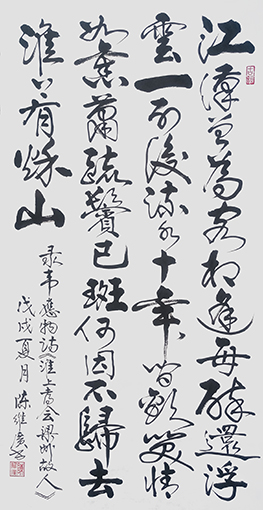 江漢曾為客相逢每醉還浮
雲一別後流水十年間歡笑情
如舊蕭疏鬢已斑何因不歸去
淮上有秋山
录韦應物诗《淮上喜会梁州故人》
戊戌夏月 陈维